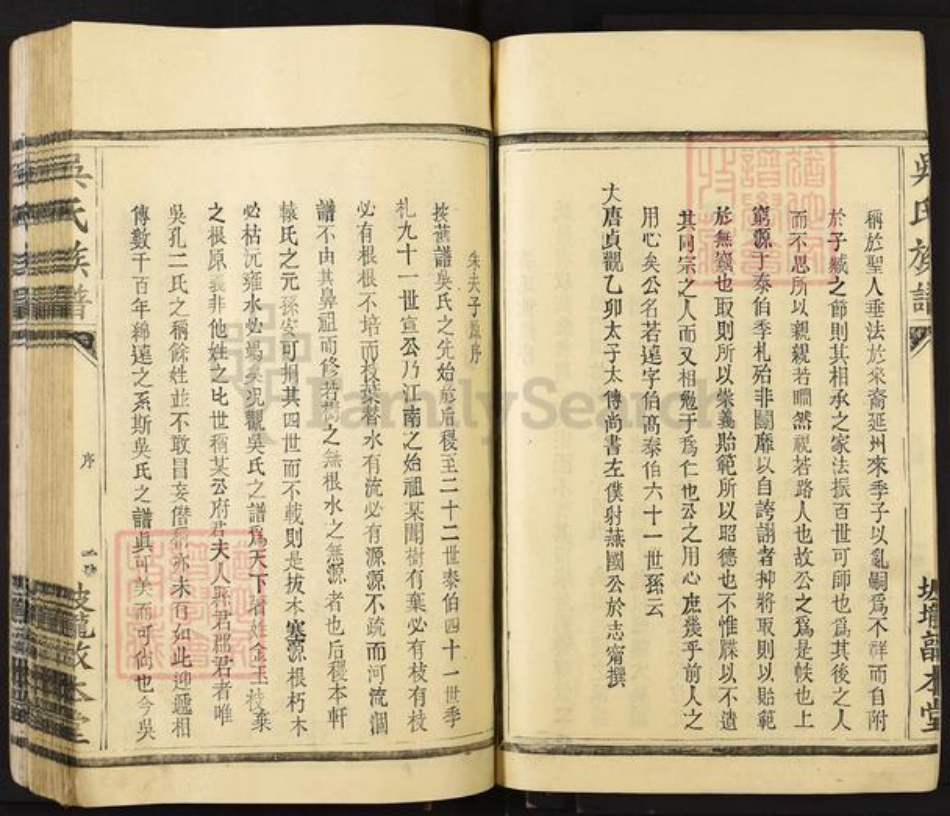 吳氏族譜
稱於聖人垂法於來裔延州來季子以亂嗣爲不祥而自附
於子臧之節則其相承之家法振百世可師也爲其後之人
而不思所以親親若瞯然視若路人也故公之爲是帙也上
窮源于泰伯季札殆非闘靡以自誇詡者抑將取則以貽範
於無窮也取則所以崇義貽範所以昭德也不惟牒以不遺
其同宗之人而又相勉于爲仁也公之用心庶幾乎前人之
用心矣公名若遠字伯高泰伯六十一世孫云
大唐貞觀乙卯太子太傅尚書左僕射燕國公於志甯撰
朱夫子原序
按舊譜吳氏之先始於后稷至二十二世泰伯四十一世季
札九十一世宣公乃江南之始祖某聞樹有棄必有枝有枝
必有根根不培而枝葉替水有流必有源源不疏而河流涸
譜不由其鼻祖而修若樹之無根水之無源者也后稷本軒
轅氏之元孫安可捐其四世而不載則是拔本塞源根朽木
必枯沉雍水必竭矣況觀吳氏之譜爲天下着姓金玉枝葉
之根原義非他姓之比世稱某公府君夫人縣君郡君者唯
吳孔二氏之稱餘姓並不敢冒妄僭稱亦未有如此迎遞相
傳數千百年綿遠之系斯吳氏之譜眞可美而可尚也今吳
吳氏族譜
序
本堂